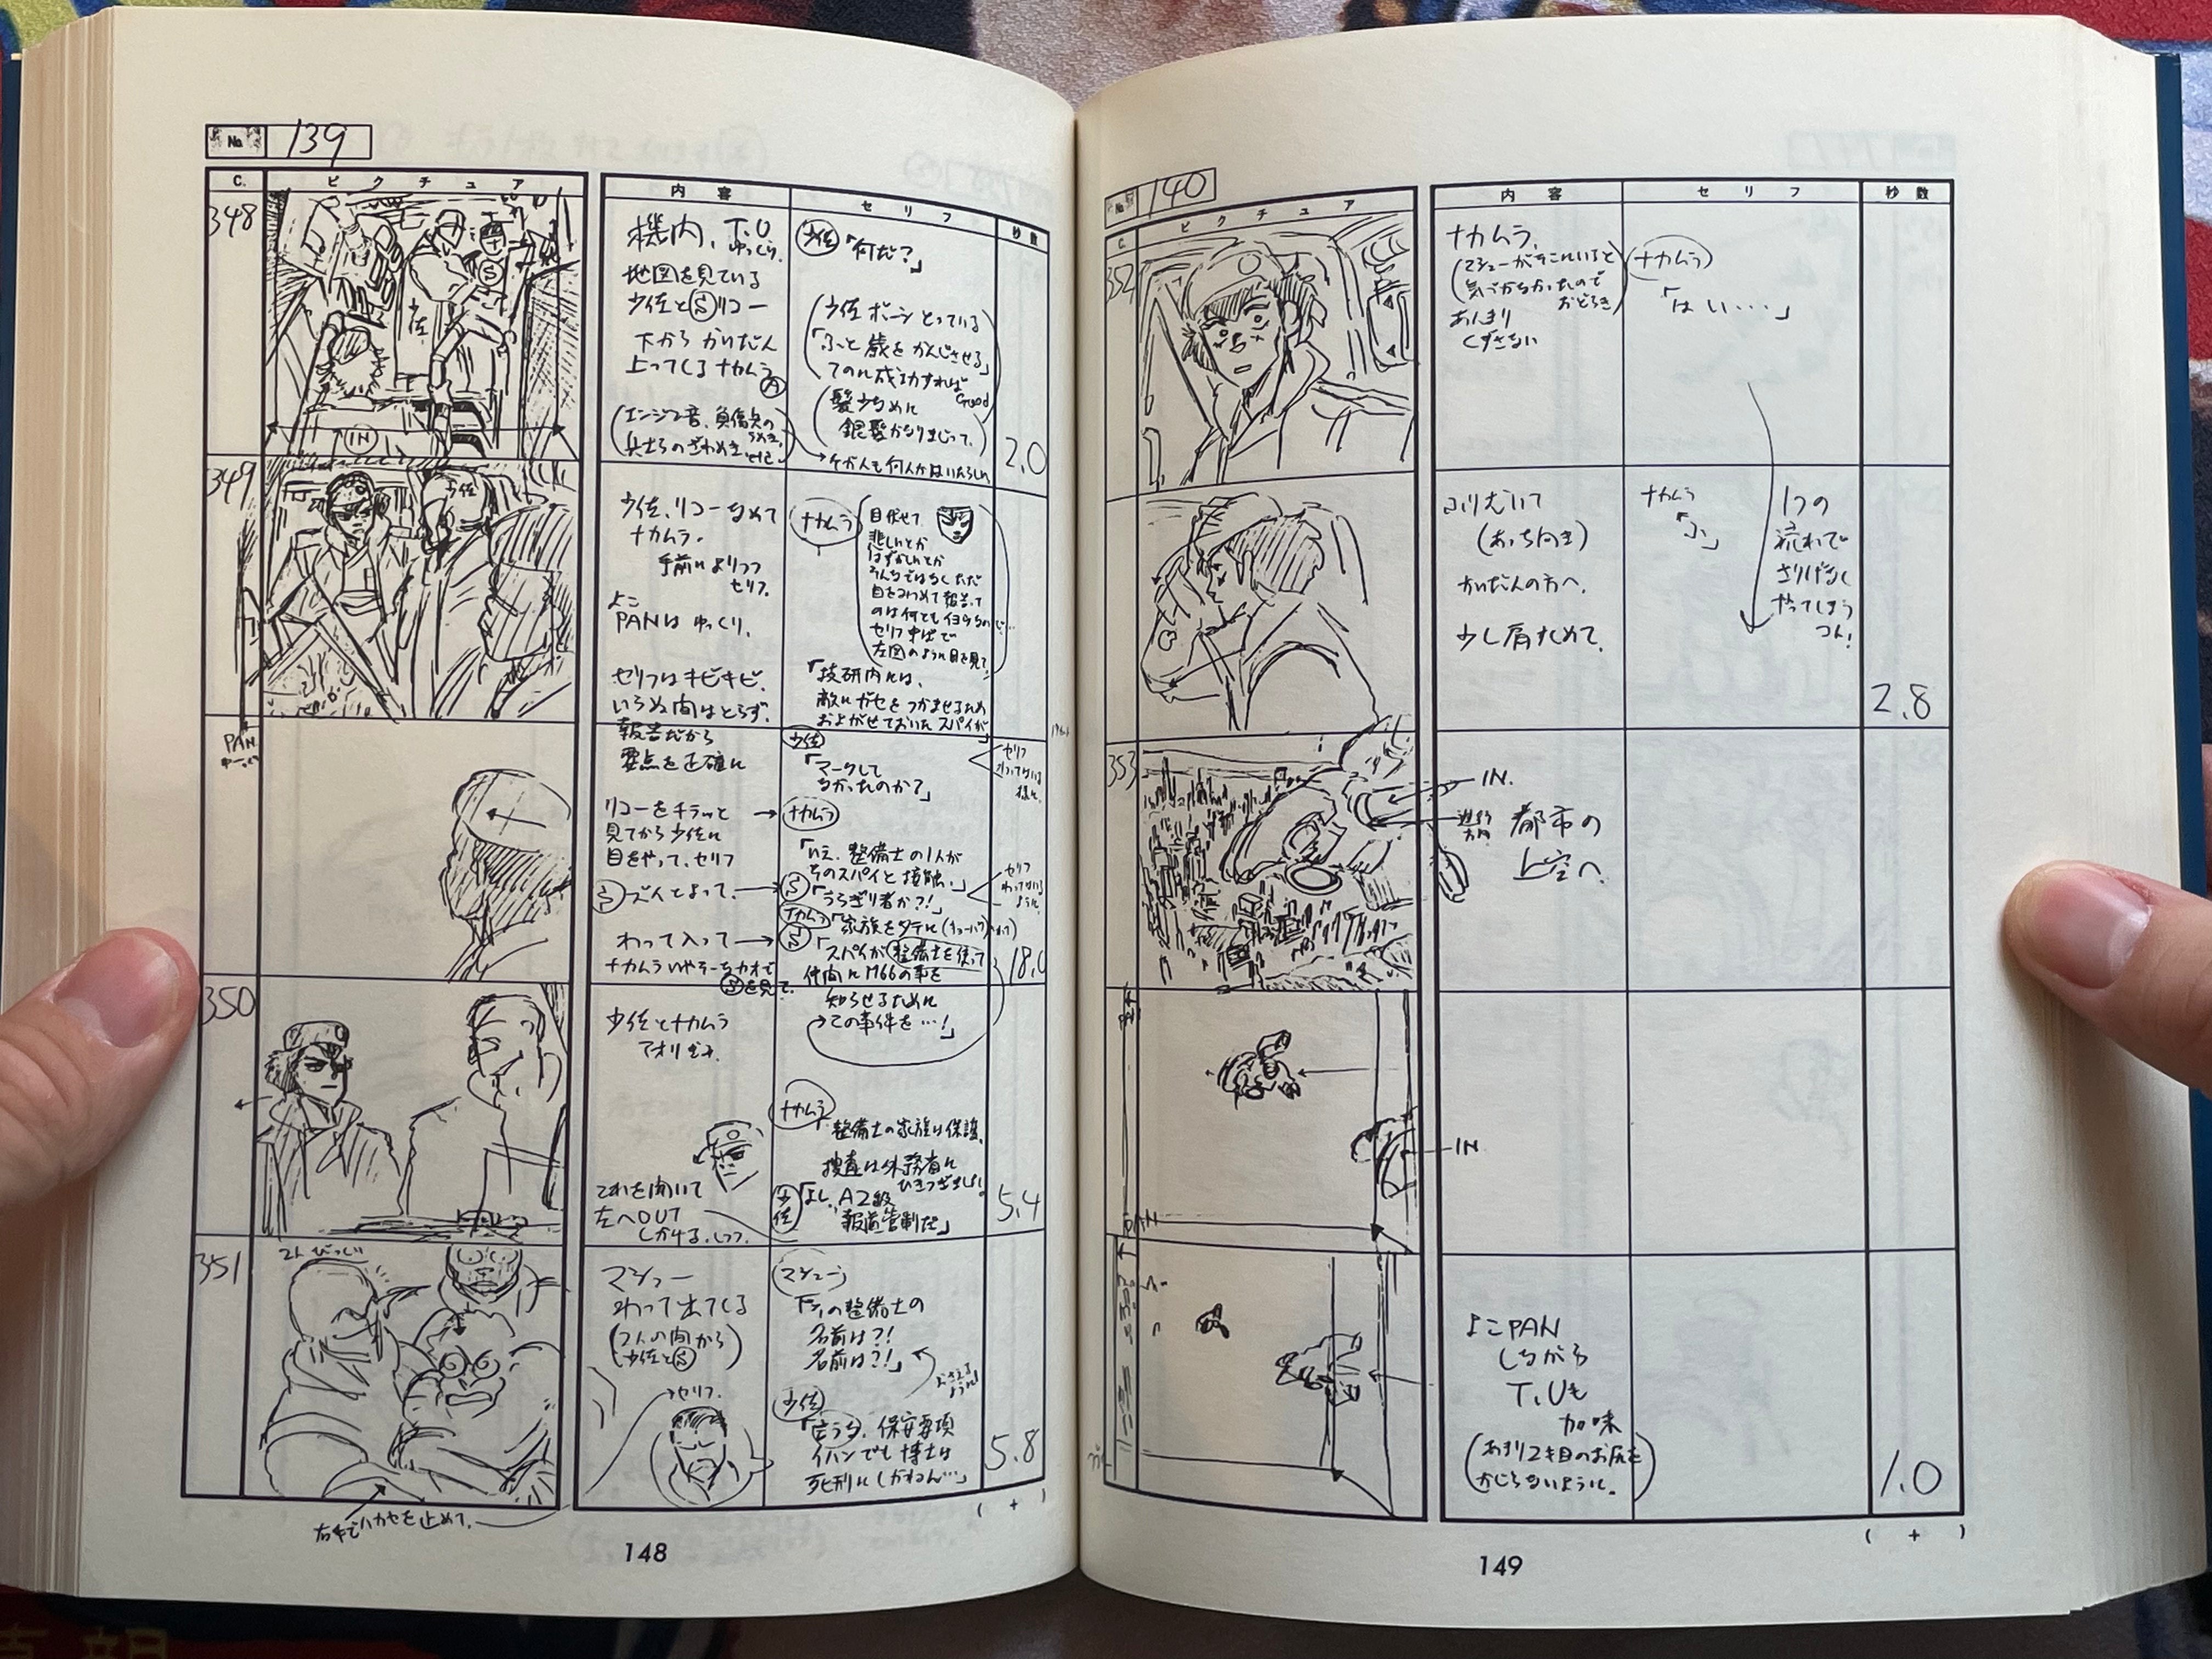 No. 139
C. ピクチュア 内容 セリフ 秒数
348
左
S
IN
機内、T.U
ゆっくり。
地図を見ている
少佐とSリコー
下から かいだん
上ってくるナカムラ
(エンジン音、負傷兵の
うめき、
兵士らのざわめき、etc.)
少佐 「何だ?」
(少佐 ボーシ とっている
「ふと歳をかんじさせる」
てのに成功すれば
Good
(髪少なめに
銀髪かなりまじって。)
けが人も何人かはいたらしい
2.0
349
少佐
PAN
少佐、リコーなめて
ナカムラ。
手前によりつつ
セリフ。
よこ
PANは ゆっくり。
セリフはキビキビ、
いらぬ間はとらず。
報告だから
要点を正確に
リコーをチラッと
見てから少佐に
目をやって、セリフ
S ズイとよって。
わって入って
ナカムラ いやそーなカオで
Sを見て。
ナカムラ
目伏せて
悲しいとか
はずかしいとか
そんなではなく ただ
目をつむって報告って
セリフ半ばで
左図のように目を見て
「技研内には、
敵にガセをつかませるため
およがせておいたスパイが」
少佐
「マークして
なかったのか?」
ナカムラ
「いえ、整備士の1人が
そのスパイと接触、」
S 「うらぎり者か?!」
ナカムラ 「家族をタテに
S 「スパイが整備士を使って
仲間にM66の事を
知らせるために
この事件を…!」
セリフ
わってない
様に。
セリフ
わってない
ように。
18.0
350
少佐とナカムラ
アオリぎみ。
これを聞いて
左へOUT
しかける。しつつ。
ナカムラ
整備士の家族は保護。
捜査は外務省に
ひきつぎました。
少佐
「よし、A2級
報道管制だ」
5.4
351
マシュー
わって出てくる
(2人の間から
少佐とS)
セリフ。
マシュー
「そ、その整備士の
名前は?!
名前は?!」
少佐
「言うな、保安事項
イハンでも 博士は
死刑に しかねん…」
5.8
右手でハカセを止めて。
( + )
148
No. 140
C. ピクチュア 内容 セリフ 秒数
352
ナカムラ、
(マシューがそこにいると
気づかなかったので
おどろき)
あんまり
くずさない
ナカムラ
「はい‥‥」
ふりむいて
(あっち向き)
かいだんの方へ。
少し肩すぼめて。
ナカムラ
「ふ」
1つの
流れで
さりげなく
やってしまう
2.8
353
IN.
進行
方向
都市の
上空へ。
PAN
IN
よこPAN
しながら
T.Uも
加味
(あまり2キ目のお尻を
かじらないように。)
1.0
( + )
149